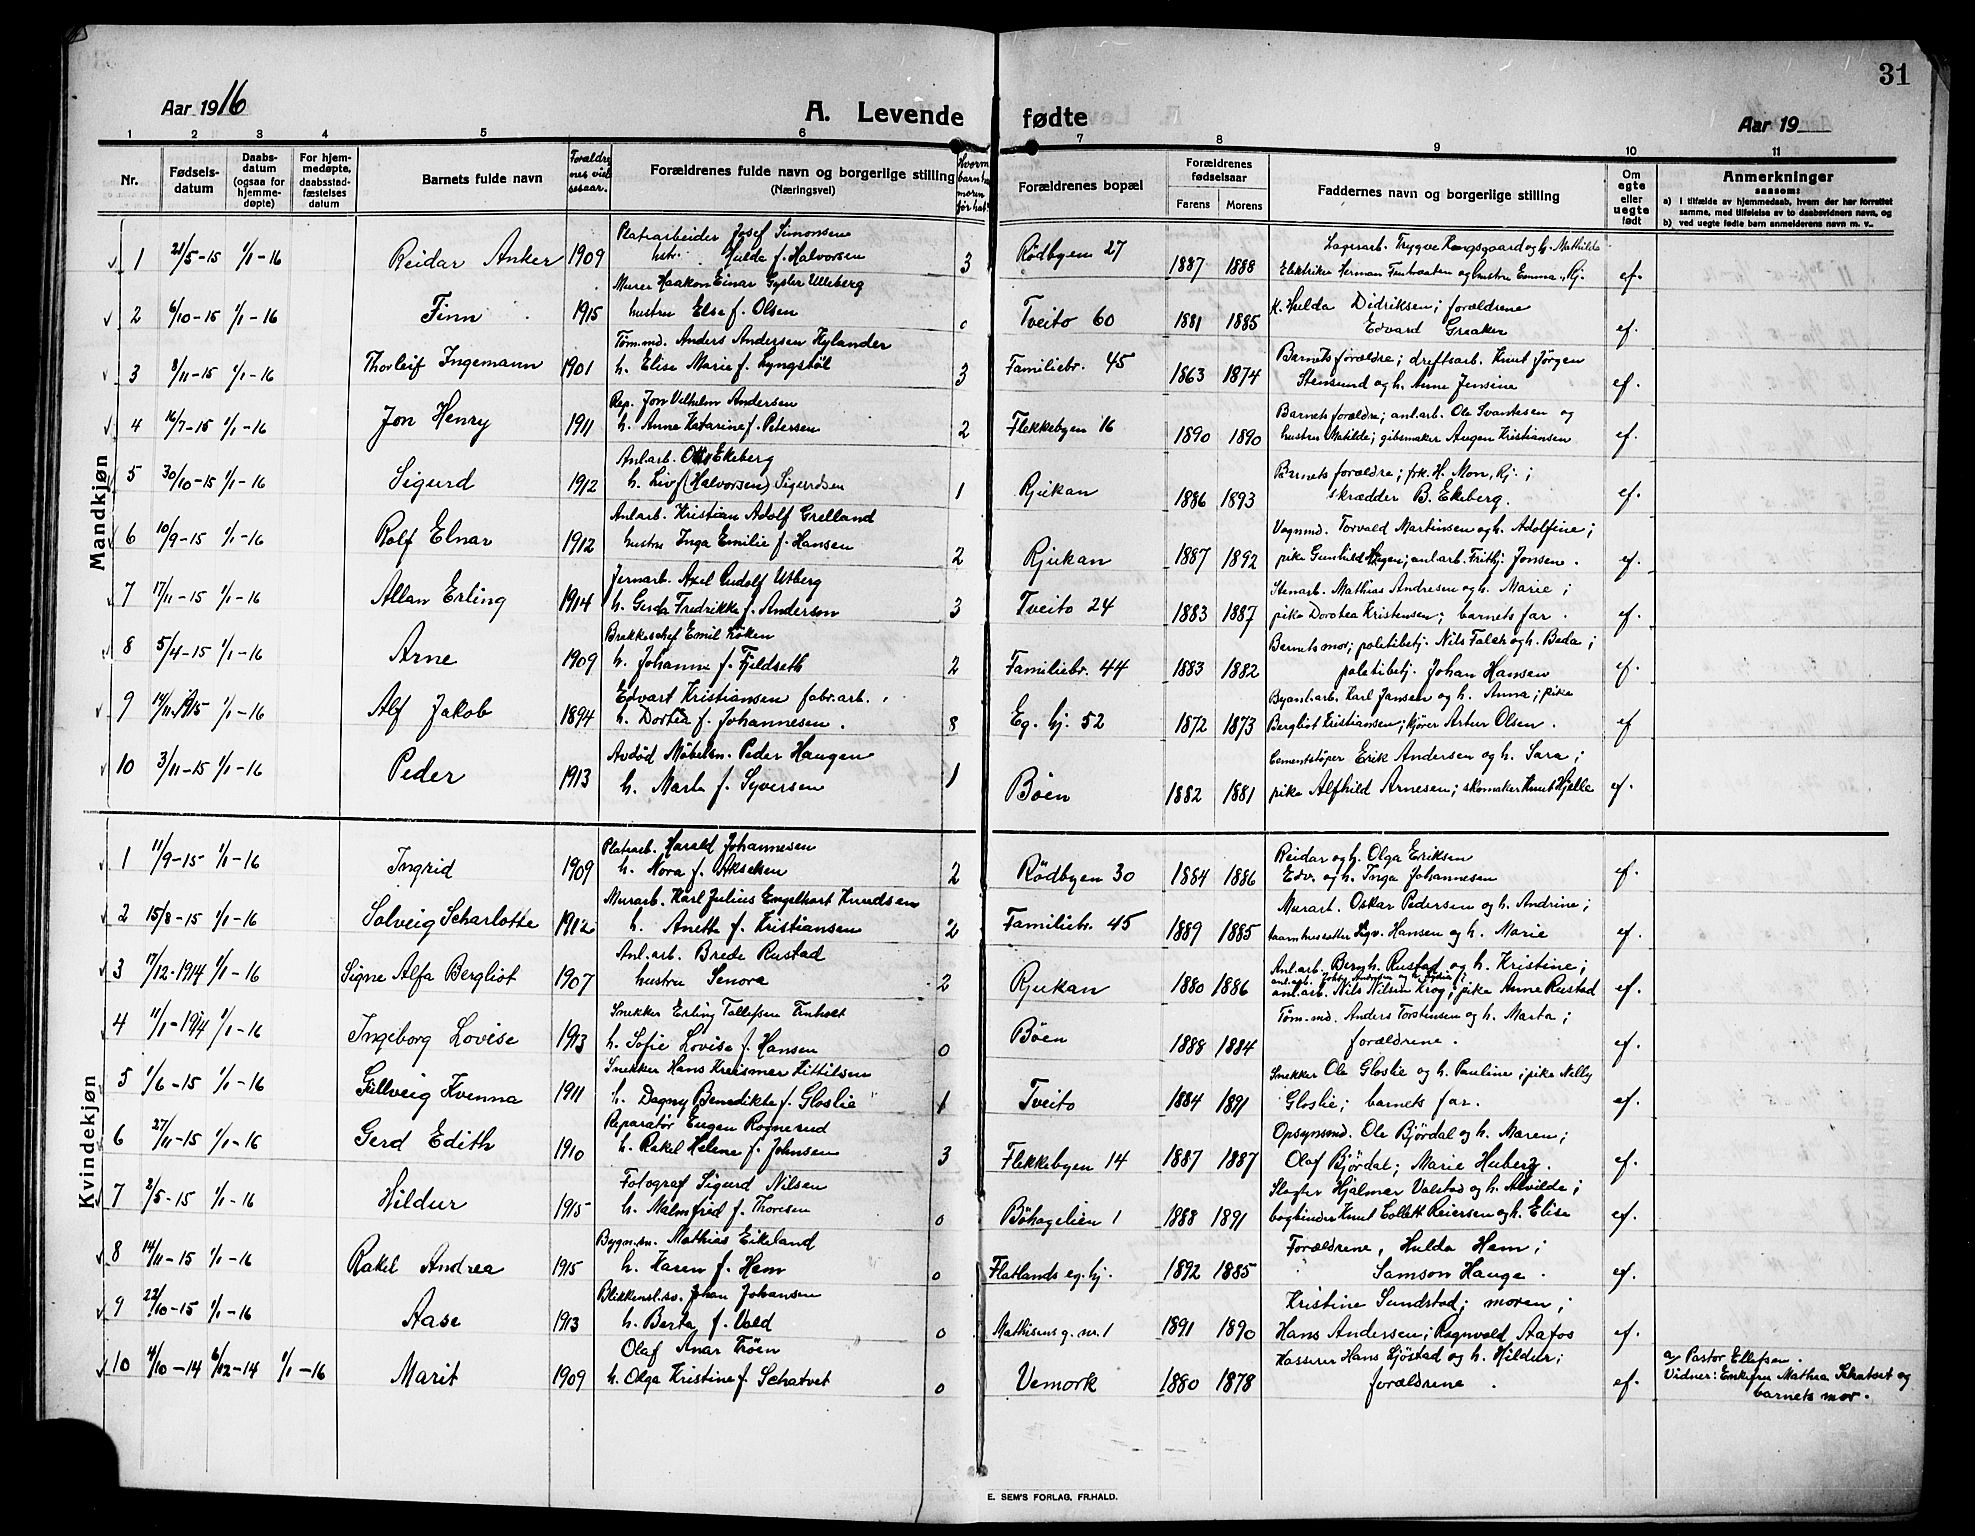 31
Aar 1916
A. Levende fødte
Aar 19
1 2 3 4 5 6 7 8 9 10 11
Nr.
Fødsels-datum
Daabs-datum (ogsaa for hjemme-døpte)
For hjem-medøpte, daabsstad-fæstelses datum
Barnets fulde navn
Forældrenes fulde navn og borgerlige stilling
(Næringsvei)
Forældrenes bopæl
Forældrenes fødselsaar
Farens Morens
Faddernes navn og borgerlige stilling
Om egte eller uegte født
Anmerkninger
saasom:
a) I tilfælde av hjemmedaab, hvem der har forrettet samme, med tilføielse av to daabsvidners navn, og
b) ved uegte fødte barn anmelderens navn m. v..
Mandkjøn
Platearbeider Josef Simonsen
1 21/5-15 1/1-16 Reidar Anker 1909 hstr. Hulda f. Halvorsen 3 Rödbyen 27 1887 1888 Lagerarb. Trygve og h. Mathilde
Elektriker Herman og hustru Emma, Rj. ef.
Murer Haakon Einar Gysler Ulleberg
2 6/10-15 1/1-16 Finn 1915 hustru Else f. Olsen 0 Tveito 60 1881 1885 K. Hulda Didriksen; forældrene
Edvard Greaker ef.
Töm.md. Anders Andersen Hylander
3 8/11-15 1/1-16 Thorleif Ingemann 1901 h. Elise Marie f. Lyngstöl 3 Familiebr. 45 1863 1874 Barnets forældre; driftsarb. Knut Jörgen
Stensund og h. Anne Jensine ef.
Rep. Jon Vilhelm Andersen
4 16/7-15 1/1-16 Jon Henry 1911 h. Anne Katarine f. Petersen 2 Flekkebyen 16 1890 1890 Barnets forældre; anl.arb. Ole Svantesen og
hustru Matilde; gibsmaker Augen Kristiansen ef.
Anl.arb. Otto Ekeberg
5 30/10-15 1/1-16 Sigurd 1912 h. Liv f. (Halvorsen) Sigurdsen 1 Rjukan 1886 1893 Barnets forældre; frk. H. Mon, Rj.;
skrædder B. Ekeberg. ef.
Anl.arb. Kristian Adolf Grelland
6 10/9-15 1/1-16 Rolf Elnar 1912 hustru Inga Emilie f. Hansen 2 Rjukan 1887 1892 Vognmd. Torvald Martinsen og h. Adolfine;
pike Gunhild Hagen; anl.arb. Frithj. Jonsen. ef.
Jernarb. Axel Rudolf Utberg
7 17/11-15 1/1-16 Allan Erling 1914 h. Gerda Fredrikke f. Anderson 3 Tveito 24 1883 1887 Stenarb. Mathias Andresen og h. Marie;
pike Dorotea Kristensen; barnets far. ef.
Brakkechef Emil Löken
8 5/4-15 1/1-16 Arne 1909 h. Johanne f. Fjeldseth 2 Familiebr. 44 1883 1882 Barnets mor; politibetj. Nils Falch og h. Beda;
politibetj. Johan Hansen ef.
Edvart Kristiansen fabr.arb.
9 14/11-1915 1/1-16 Alf Jakob 1894 h. Dortea f. Johannesen. 8 Eg. hj. 52 1872 1873 Byanl.arb. Karl Jansen og h. Anna; pike
Bergliot Kristiansen; kjörer Artur Olsen. ef
Avdöd Möbelsn. Peder Haugen
10 3/11-15 1/1-16 Peder 1913 h. Marta f. Syversen 1 Böen 1882 1881 Cementstöper Erik Andersen og h. Sara;
pike Alfhild Arnesen; skomaker Knut Hjelle ef.
Kvindekjøn
Platearb. Harald Johannesen
1 11/9-15 1/1-16 Ingrid 1909 h. Nora f. Akselsen 2 Rödbyen 30 1884 1886 Reidar og h. Olga Eriksen
Edv. og h. Inga Johannesen ef.
Murarb. Karl Julius Engelhart Knudsen
2 15/8-15 1/1-16 Solveig Scharlotte 1912 h. Anette f. Kristiansen 2 Familiebr. 45 1889 1885 Murarb. Oskar Pedersen og h. Andrine;
Sigv. Hansen og h. Marie ef.
Anl.arb. Brede Rustad
3 17/12-1914 1/1-16 Signe Alfa Bergliot 1907 hustru Senora 2 Rjukan 1880 1886 Anl.arb. Bergh. Rustad og h. Kristine;
anl.arb. Nils Nilsen Krog; pike Anne Rustad ef.
Snekker Erling Tollefsen Enholt
4 11/1-1914 1/1-16 Ingeborg Lovise 1913 h. Sofie Lovise f. Hansen 0 Böen 1888 1884 Töm.md. Anders Torstensen og h. Marta;
forældrene. ef.
Snekker Hans Kreismer Kittilsen
5 1/6-15 1/1-16 Gullveig Kvenna 1911 h. Dagny Benedikte f. Gloslie 1 Tveito 1884 1891 Snekker Ole Gloslie og h. Pauline; pike Nelly
Gloslie; barnets far. ef.
Reparatör Eugen Rognerud
6 27/11-15 1/1-16 Gerd Edith 1910 h. Rakel Helene f. Johnsen 3 Flekkebyen 14 1887 1887 Opsynsmd. Ole Björdal og h. Maren;
Olaf Björdal; Marie Huberg. ef.
Fotograf Sigurd Nilsen
7 2/5-15 1/1-16 Hildur 1915 h. Malmfrid f. Thoresen 0 Böhagelien 1 1888 1891 Slagter Hjalmar Valstad og h. Alvilde;
bogbinder Knut Collett Reiersen og h. Elise ef.
Bygn.sn. Mathias Eikeland
8 14/11-15 1/1-16 Rakel Andrea 1915 h. Karen f. Hem 0 Flatlands eg. hj. 1892 1885 Forældrene, Hulda Hem;
Samson Hauge. ef.
Blikkensl.sv. Johan Johansen
9 22/10-15 1/1-16 Aase 1913 h. Berta f. Vold 0 Mathisens g. nr. 1 1891 1890 Kristine Sundstad; moren;
Hans Andersen; Ragnvald Aafos ef.
Olaf Anar Tröen
10 4/10-14 6/12-14 1/1-16 Marit 1909 h. Olga Kristine f. Schatvet 0 Vemork 1880 1878 Kasserer Hans Sjöstad og h. Hildur;
forældrene. ef.
a) Pastor Ellefsen.
Vidner: Enkefru Mathea Schatvet og
barnets mor.
E. SEM'S FORLAG, FR.HALD.